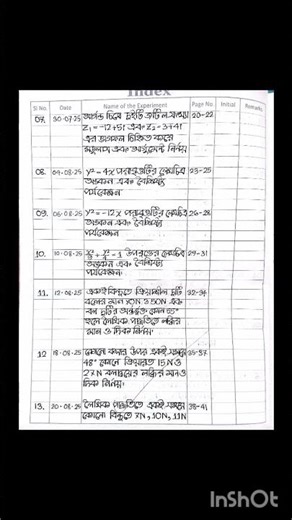 Index
Sl No.
Date
Name of the Experiment
Page No
Initial
Remarks
07.
30-07-25
আর্গন্ড চিত্রে দুইটি জটিল সংখ্যা
20-22
z₁ = -12+5i এবং z₂ = 3+4i
এর ভাগফল চিহ্নিত করে
মডুলাস এবং আর্গুমেন্ট নির্ণয়
08.
04-08-25
y² = 4x পরাবৃত্তটির লেখচিত্র
23-25
অঙ্কন এবং বৈশিষ্ট্য
পর্যবেক্ষণ
09.
06-08-25
y² = -12x পরাবৃত্তটির লেখচিত্র
26-28
অঙ্কন এবং বৈশিষ্ট্য
পর্যবেক্ষণ
10.
10-08-25
উপবৃত্তের লেখচিত্র
29-31
অঙ্কন এবং বৈশিষ্ট্য
পর্যবেক্ষণ।
11.
12-08-25
একই বিন্দুতে ক্রিয়াশীল দুটি
32-34
বলের মান
হলে লৈখিক পদ্ধতিতে লব্ধির
মান ও দিক নির্ণয়।
12
18-08-25
কোনো বস্তুর উপর একই সময়ে
35-37
48° কোণে ক্রিয়ারত 15N ও
27N বলদ্বয়ের লব্ধির মান ও
দিক নির্ণয়।
13.
20-08-25
লৈখিক পদ্ধতিতে একই সময়ে
38-41
কোনো বিন্দুতে 7N, 10N, 11N
InShOt